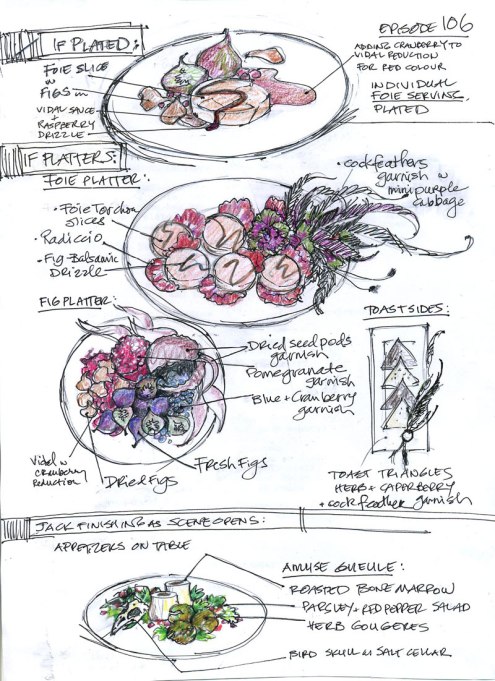 EPISODE 106
IF PLATED:
FOIE SLICE
W
FIGS W
VIDAL SAUCE
+
RASPBERRY
DRIZZLE
ADDING CRANBERRY TO
VIDAL REDUCTION
FOR RED COLOUR
INDIVIDUAL
FOIE SERVING,
PLATED
IF PLATTERS:
FOIE PLATTER:
• Foie Torchon
Slices
• Radiccio
• Fig-Balsamic
Drizzle
• cockfeathers
garnish w
mini purple
cabbage
FIG PLATTER:
Dried seed pods
garnish
Pomegranate
garnish
Blue + Cranberry
garnish
Fresh Figs
Dried Figs
Vidal w
Cranberry
Reduction
TOAST SIDES:
TOAST TRIANGLES
HERB + CAPERBERRY
+ cock feather garnish
JACK FINISHING AS SCENE OPENS:
APPETIZERS ON TABLE
AMUSE GUEULE:
ROASTED BONE MARROW
PARSLEY + RED PEPPER SALAD
HERB GOUGERES
BIRD SKULL W SALT CELLAR